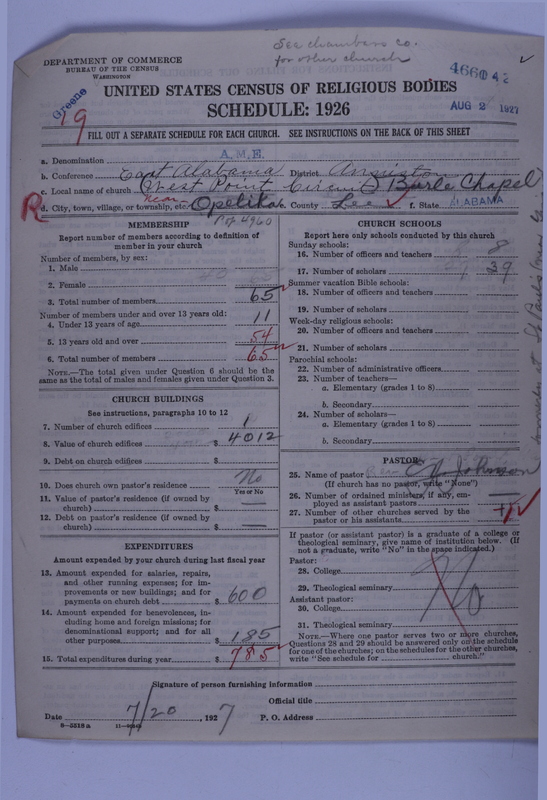 See Chambers Co.
for other church
DEPARTMENT OF COMMERCE
BUREAU OF THE CENSUS
WASHINGTON
Greene
19
AUG 2 1927
UNITED STATES CENSUS OF RELIGIOUS BODIES
SCHEDULE: 1926
FILL OUT A SEPARATE SCHEDULE FOR EACH CHURCH. SEE INSTRUCTIONS ON THE BACK OF THIS SHEET
a. Denomination A.M.E.
b. Conference East Alabama District Anniston
c. Local name of church (West Point Circuit) Burle Chapel
R
d. City, town, village, or township, etc. near Opelika b. County Lee f. State ALABAMA
Pop 4960
MEMBERSHIP
Report number of members according to definition of
member in your church
Number of members, by sex:
1. Male
2. Female
3. Total number of members 65
Number of members under and over 13 years old:
4. Under 13 years of age 11
5. 13 years old and over 54
6. Total number of members 65
NOTE.—The total given under Question 6 should be the
same as the total of males and females given under Question 3.
CHURCH BUILDINGS
See instructions, paragraphs 10 to 12
7. Number of church edifices 1
8. Value of church edifices $ 4012
9. Debt on church edifices $
10. Does church own pastor's residence No
Yes or No
11. Value of pastor's residence (if owned by
church) $ —
12. Debt on pastor's residence (if owned by
church) $ —
EXPENDITURES
Amount expended by your church during last fiscal year
13. Amount expended for salaries, repairs,
and other running expenses; for im-
provements or new buildings; and for
payments on church debt $ 600
14. Amount expended for benevolences, in-
cluding home and foreign missions; for
denominational support; and for all
other purposes $ 185
15. Total expenditures during year $ 785
CHURCH SCHOOLS
Report here only schools conducted by this church
Sunday schools:
16. Number of officers and teachers 8
17. Number of scholars 39
Summer vacation Bible schools:
18. Number of officers and teachers
19. Number of scholars
Week-day religious schools:
20. Number of officers and teachers
21. Number of scholars
Parochial schools:
22. Number of administrative officers
23. Number of teachers—
a. Elementary (grades 1 to 8)
b. Secondary
24. Number of scholars—
a. Elementary (grades 1 to 8)
b. Secondary
PASTOR
25. Name of pastor Johnson
(If church has no pastor, write "None")
26. Number of ordained ministers, if any, em-
ployed as assistant pastors —
27. Number of other churches served by the
pastor or his assistants
If pastor (or assistant pastor) is a graduate of a college or
theological seminary, give name of institution below. (If
not a graduate, write "No" in the space indicated.)
Pastor:
28. College
29. Theological seminary
No
Assistant pastor:
30. College
31. Theological seminary
NOTE.—Where one pastor serves two or more churches,
Questions 28 and 29 should be answered only on the schedule
for one of the churches; on the schedules for the other churches,
write "See schedule for church."
Signature of person furnishing information
Official title
Date 7/20, 1927 P. O. Address